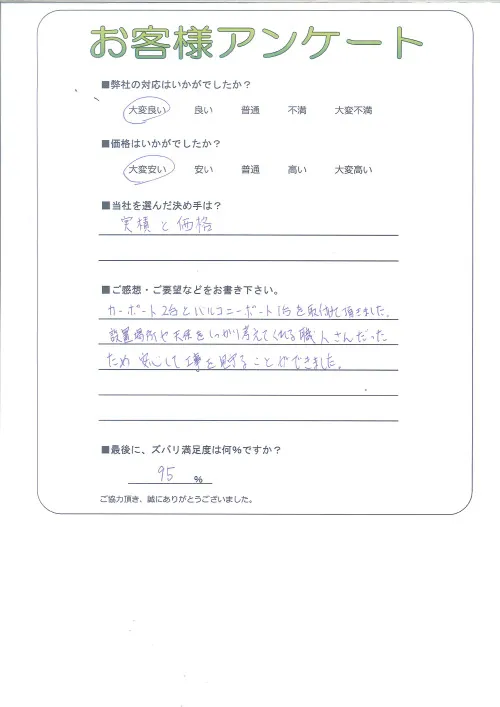 お客様アンケート
■弊社の対応はいかがでしたか？
大変良い 良い 普通 不満 大変不満
■価格はいかがでしたか？
大変安い 安い 普通 高い 大変高い
■当社を選んだ決め手は？
実積と価格
■ご感想・ご要望などをお書き下さい。
カーポート2台とバルコニーポート1台を取付て頂きました。
設置場所や天候をしっかり考えてくれる職人さんだった
ため安心して工事を見守ることができました。
■最後に、ズバリ満足度は何％ですか？
95 ％
ご協力頂き、誠にありがとうございました。